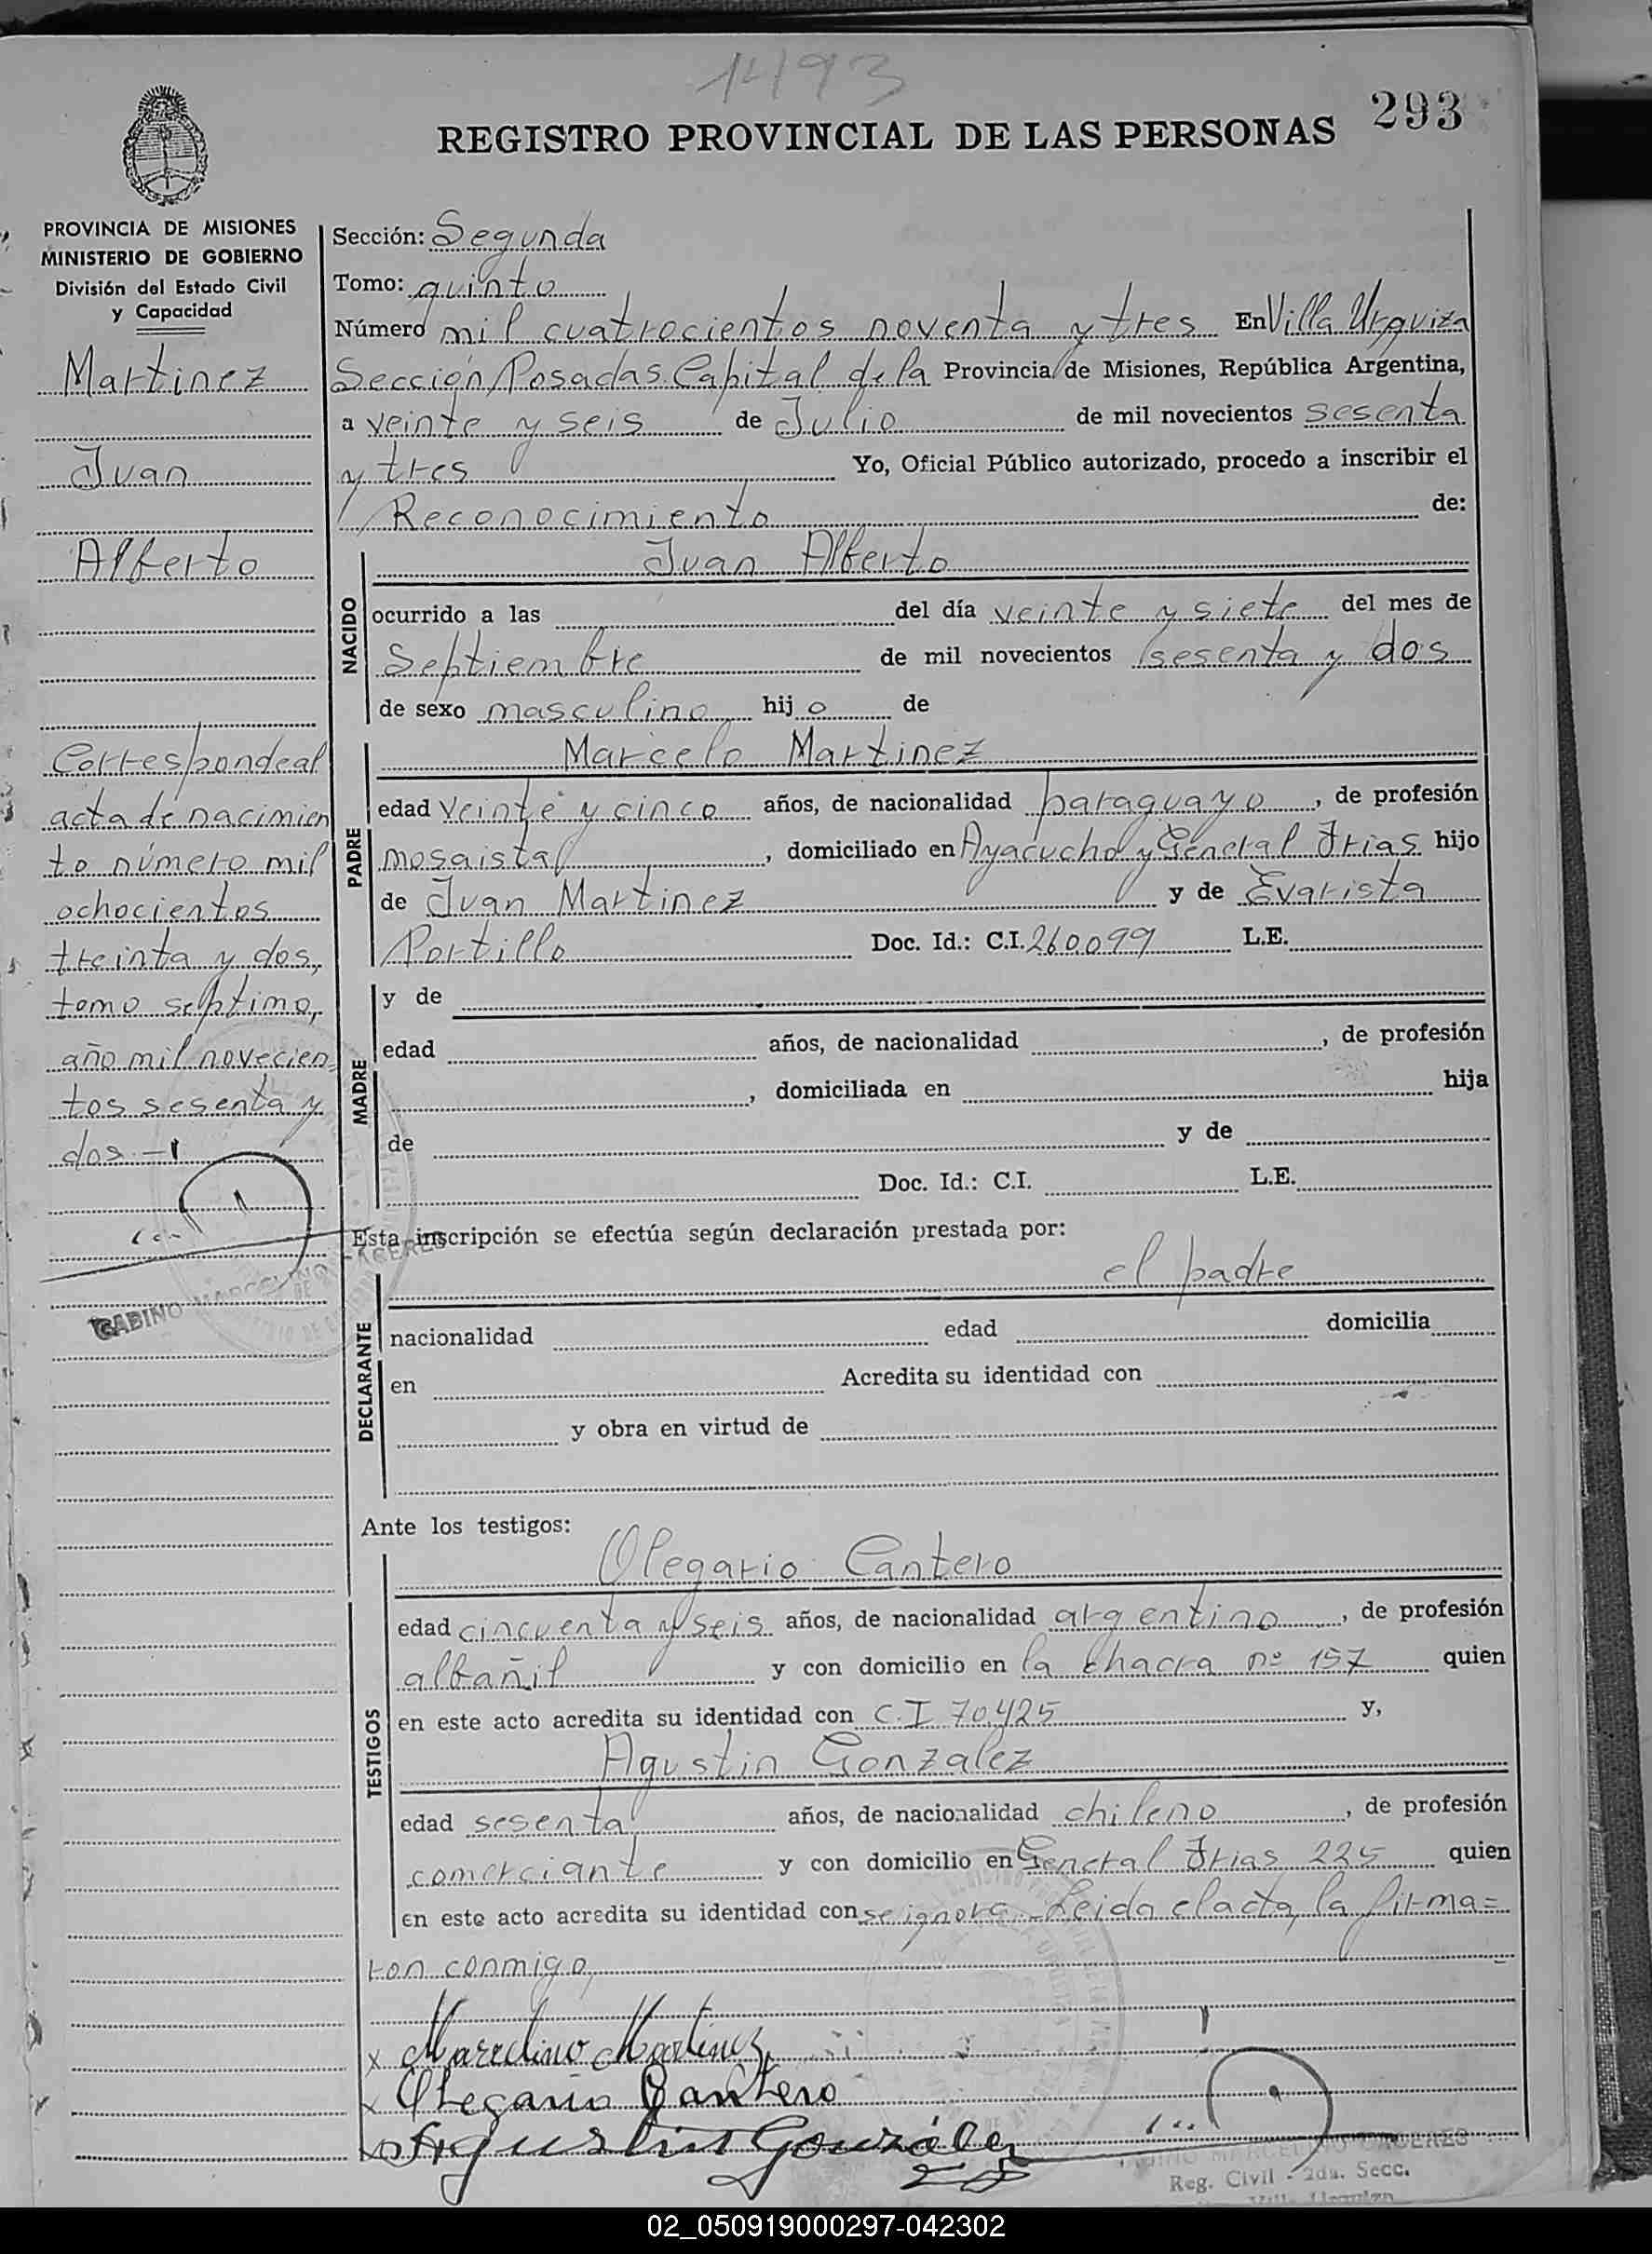 1493
293
REGISTRO PROVINCIAL DE LAS PERSONAS
PROVINCIA DE MISIONES
MINISTERIO DE GOBIERNO
División del Estado Civil
y Capacidad
Martinez
Juan
Alberto
Correspondeal
acta de nacimien
to número mil
ochocientos
treinta y dos,
tomo septimo,
año mil novecien
tos sesenta y
dos.-
GABINO MARCELINO CACERES
Sección: Segunda
Tomo: quinto
Número mil cuatrocientos noventa y tres En Villa Urquiza
Sección, Posadas Capital de la Provincia de Misiones, República Argentina,
a veinte y seis de Julio de mil novecientos sesenta
y tres Yo, Oficial Público autorizado, procedo a inscribir el
Reconocimiento de:
NACIDO
Juan Alberto
ocurrido a las del día veinte y siete del mes de
Septiembre de mil novecientos sesenta y dos
de sexo masculino hijo de
PADRE
Marcelo Martinez
edad veinte y cinco años, de nacionalidad paraguayo, de profesión
mosaista, domiciliado en Ayacucho y General Frias hijo
de Juan Martinez y de Evarista
Portillo Doc. Id.: C.I. 260099 L.E.
MADRE
y de
edad años, de nacionalidad , de profesión
, domiciliada en hija
de y de
Doc. Id.: C.I. L.E.
Esta inscripción se efectúa según declaración prestada por:
el padre
DECLARANTE
nacionalidad edad domicilia
en Acredita su identidad con
y obra en virtud de
Ante los testigos:
TESTIGOS
Olegario Cantero
edad cincuenta y seis años, de nacionalidad argentino, de profesión
albañil y con domicilio en la chacra nº 157 quien
en este acto acredita su identidad con C.I 70.425 y,
Agustin Gonzalez
edad sesenta años, de nacionalidad chileno, de profesión
comerciante y con domicilio en General Frias 225 quien
en este acto acredita su identidad con se ignora. Leida el acta, la firma=
ron conmigo,
x Marcelino Martinez
x Olegario Cantero
Agustin González
GABINO MARCELINO CACERES
Reg. Civil - 2da. Secc.
Villa Urquiza
02_050919000297-042302